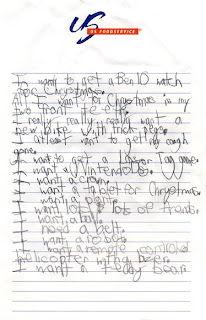 US
US FOODSERVICE
I want to get a Ben 10 watch
for Chrystmas.
All I want for Christmas is my
two front teeth.
I really really really want a
new bike with trick pegs.
I want to get my cough
gone.
I want to get a Laser Tag game.
I want a Nintendo DS.
I want a crown.
I want a tablet for Chrystmas.
I want a plant.
I want lots lots of friends.
I want a ball.
I need a belt.
I want a robot.
I want a remote controled
helicopter with a
I want a teddy bear.